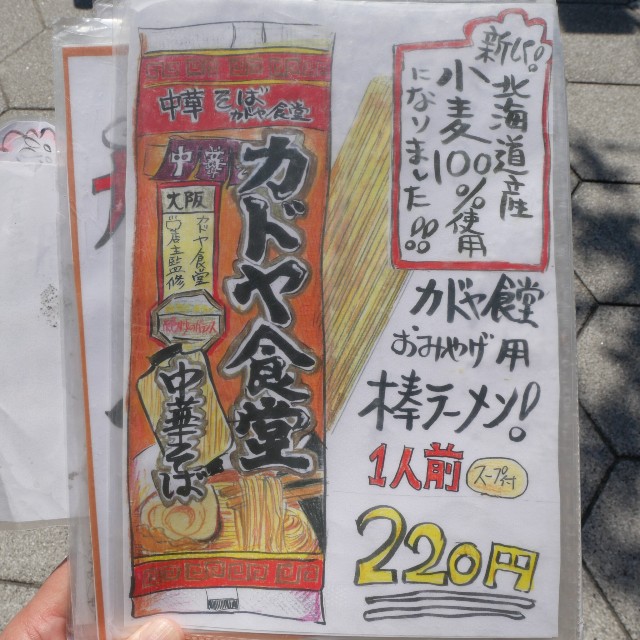 中華そば
カドヤ食堂
中華
カドヤ食堂
大阪
カドヤ食堂
店主監修
中華そば
新しい!!
北海道産
小麦100%使用
になりました!!!
カドヤ食堂
おみやげ用
棒ラーメン!
1人前
スープ付
220円